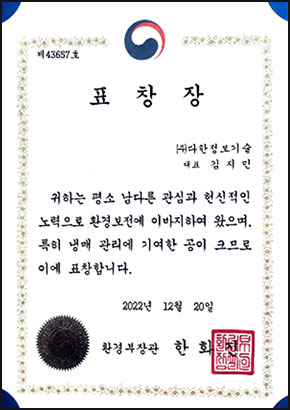 제43657호
표 창 장
(주)다한정보기술
대표 김지민
귀하는 평소 남다른 관심과 헌신적인
노력으로 환경보전에 이바지하여 왔으며,
특히 냉매 관리에 기여한 공이 크므로
이에 표창합니다.
2022년 12월 20일
환경부장관 한 화 진